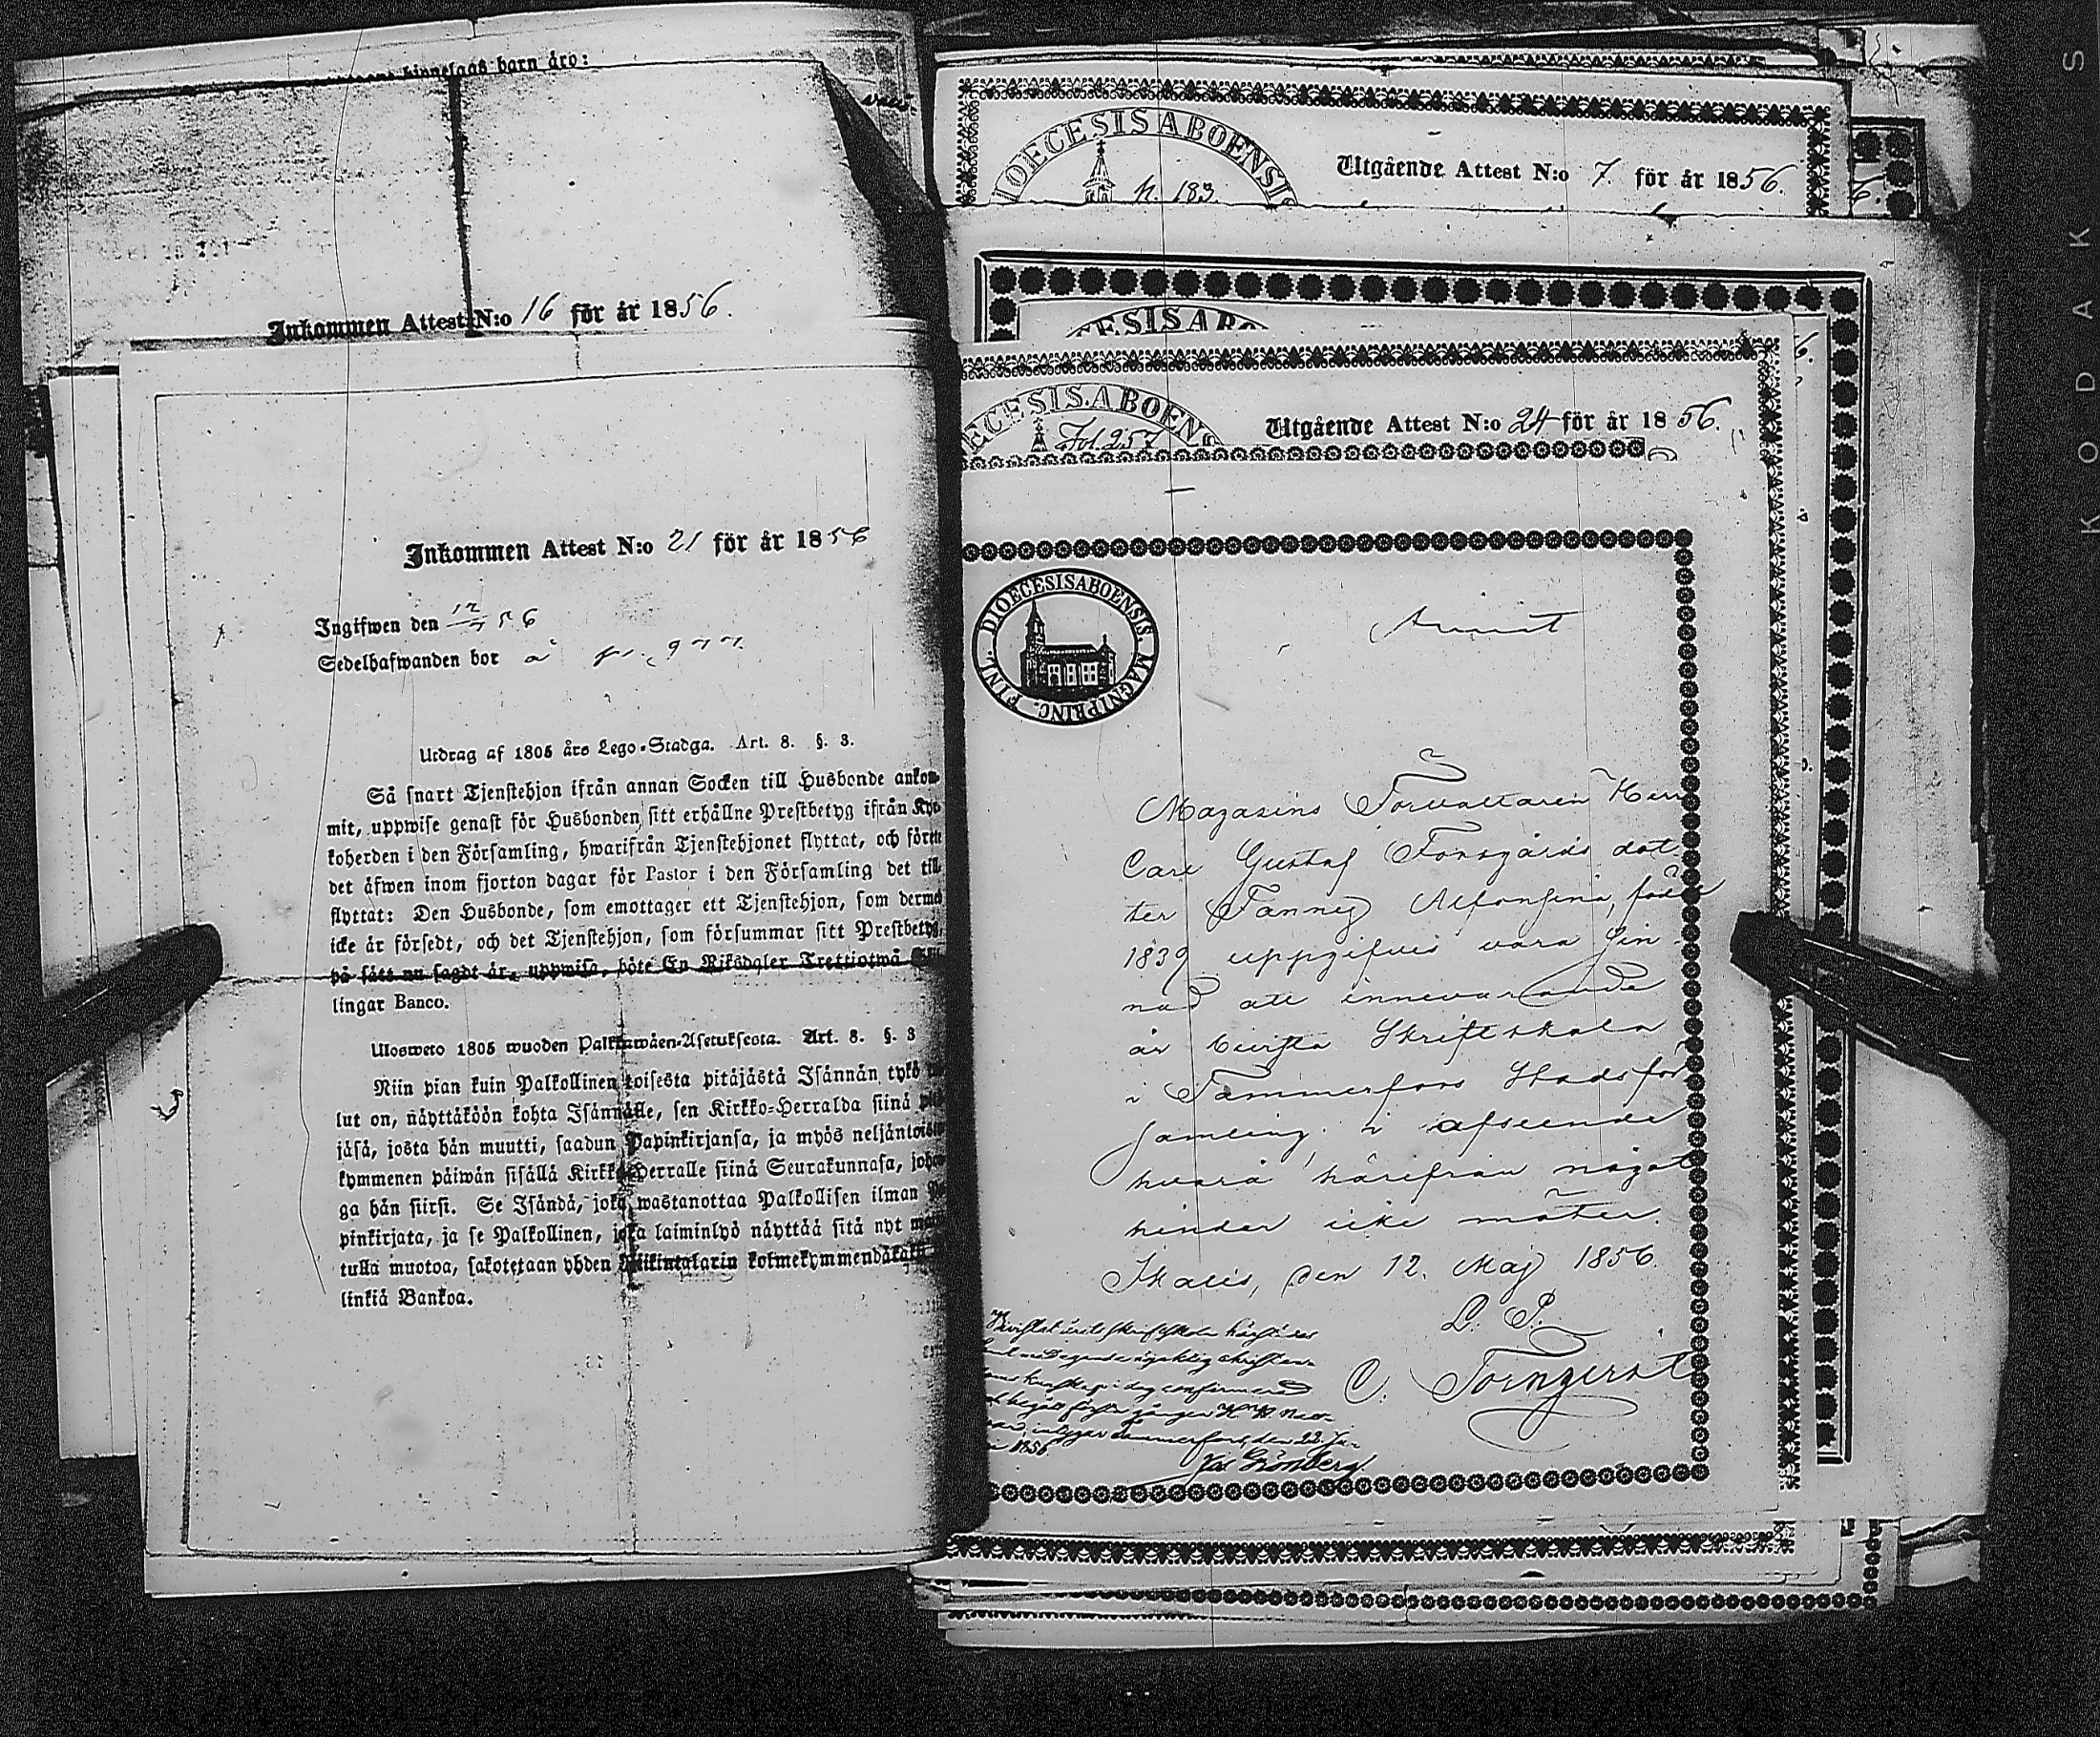 barn äro:
Inkommen Attest N:o 16 för år 1856.
Inkommen Attest N:o 21 för år 1856
Ingifwen den 12/7 56
Sedelhafwanden bor å
Utdrag af 1805 års Lego-Stadga. Art. 8. §. 3.
Så snart Tjenstehjon ifrån annan Socken till Husbonde ankom-
mit, uppwise genast för Husbonden sitt erhållne Prestbetyg ifrån Kyr-
koherden i den Församling, hwarifrån Tjenstehjonet flyttat, och förete
det äfwen inom fjorton dagar för Pastor i den Församling det till
flyttat: Den Husbonde, som emottager ett Tjenstehjon, som dermed
icke är försedt, och det Tjenstehjon, som försummar sitt Prestbetyg,
på sätt nu sagdt är, uppwisa, böte En Riksdaler Trettiotwå Skil-
lingar Banco.
Ulosweto 1805 wuoden Palkkawäen-Asetuksesta. Art. 8. §. 3
Niin pian kuin Palkollinen toisesta pitäjästä Isännän tykö
lut on, näyttäköön kohta Isännälle, sen Kirkko-Herralda siinä pitä-
jäsä, josta hän muutti, saadun Papinkirjansa, ja myös neljäntoista
kymmenen päiwän sisällä Kirkko-Herralle siinä Seurakunnasa, johon-
ga hän siirsi. Se Isändä, joka wastanottaa Palkollisen ilman Pa-
pinkirjata, ja se Palkollinen, joka laiminlyö näyttää sitä nyt mai-
tulla muotoa, sakotetaan yhden Riikintalarin kolmekymmendäkaksi
linkiä Bankoa.
DIOECESIS ABOENSIS
N. 183.
Utgående Attest N:o 7. för år 1856.
ECESIS ABO
ECESIS ABOEN
Fol. 257
Utgående Attest N:o 24 för år 1856.
DIOECESIS ABOENSIS. MAGNI PRINC. FINL.
Magazins Förvaltaren Herr
Carl Gustaf Forsgårds dot-
ter Fanny Alfonsina, född
1839 uppgifves vara sin-
nad att innevarande
år bevista Skriftskola
i Tammerfors Stadsför
samling, i afseende
hvarå härifrån något
hinder icke möter.
Ikalis, den 12. Maj 1856.
L. P.
C. Törngerst
Bevistat årets skriftskola härstädes
confirmerad
begått första gången H. H. Natt-
intygar Tammerfors den 23. Ju-
1856
Grönberg
KODAK S